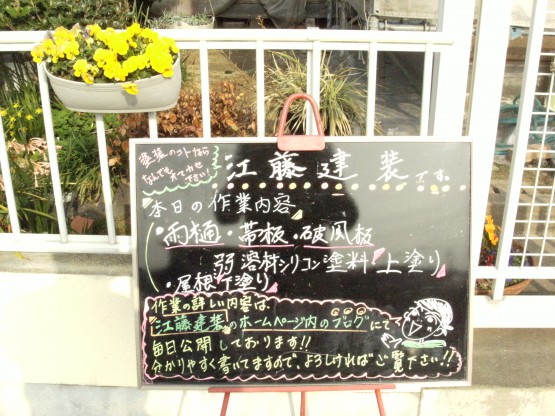 塗装のコトなら
なんでもまかせ
下さい!
江藤建装です。
本日の作業内容
・雨樋・帯板・破風板
弱溶剤シリコン塗料・上塗り
・屋根下塗り
作業の詳しい内容は
江藤建装のホームページ内のブログにて
毎日公開しております!!
分かりやすく書いてますので、よろしければご覧下さい!!